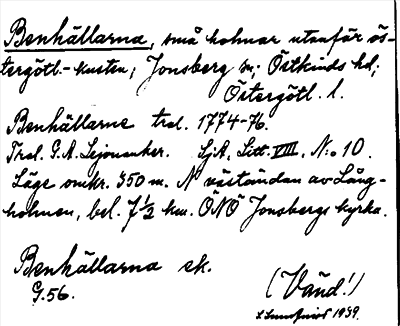 Benhällarna, små holmar utanför ös-
tergötl.-kusten; Jonsberg sn; Östkinds hd;
Östergötl. l.
Benhällarne trol. 1774-76.
Trol. G. A. Lejonanker. Sjk, Litt. VIII, No 10.
Läge omkr. 350 m. N västandan av Lång-
holmen, bel. 7½ km. ÖNÖ Jonsbergs kyrka.
Benhällarna ek.
G. 56.
(Vänd!)
1939.